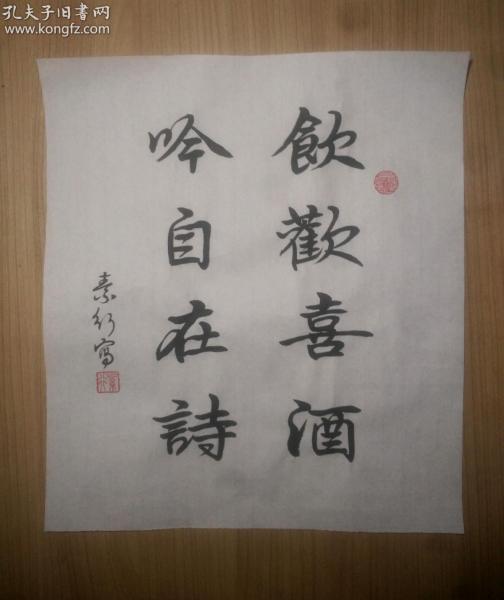 孔夫子旧书网
www.kongfz.com
飲歡喜酒
吟自在詩
素行寫